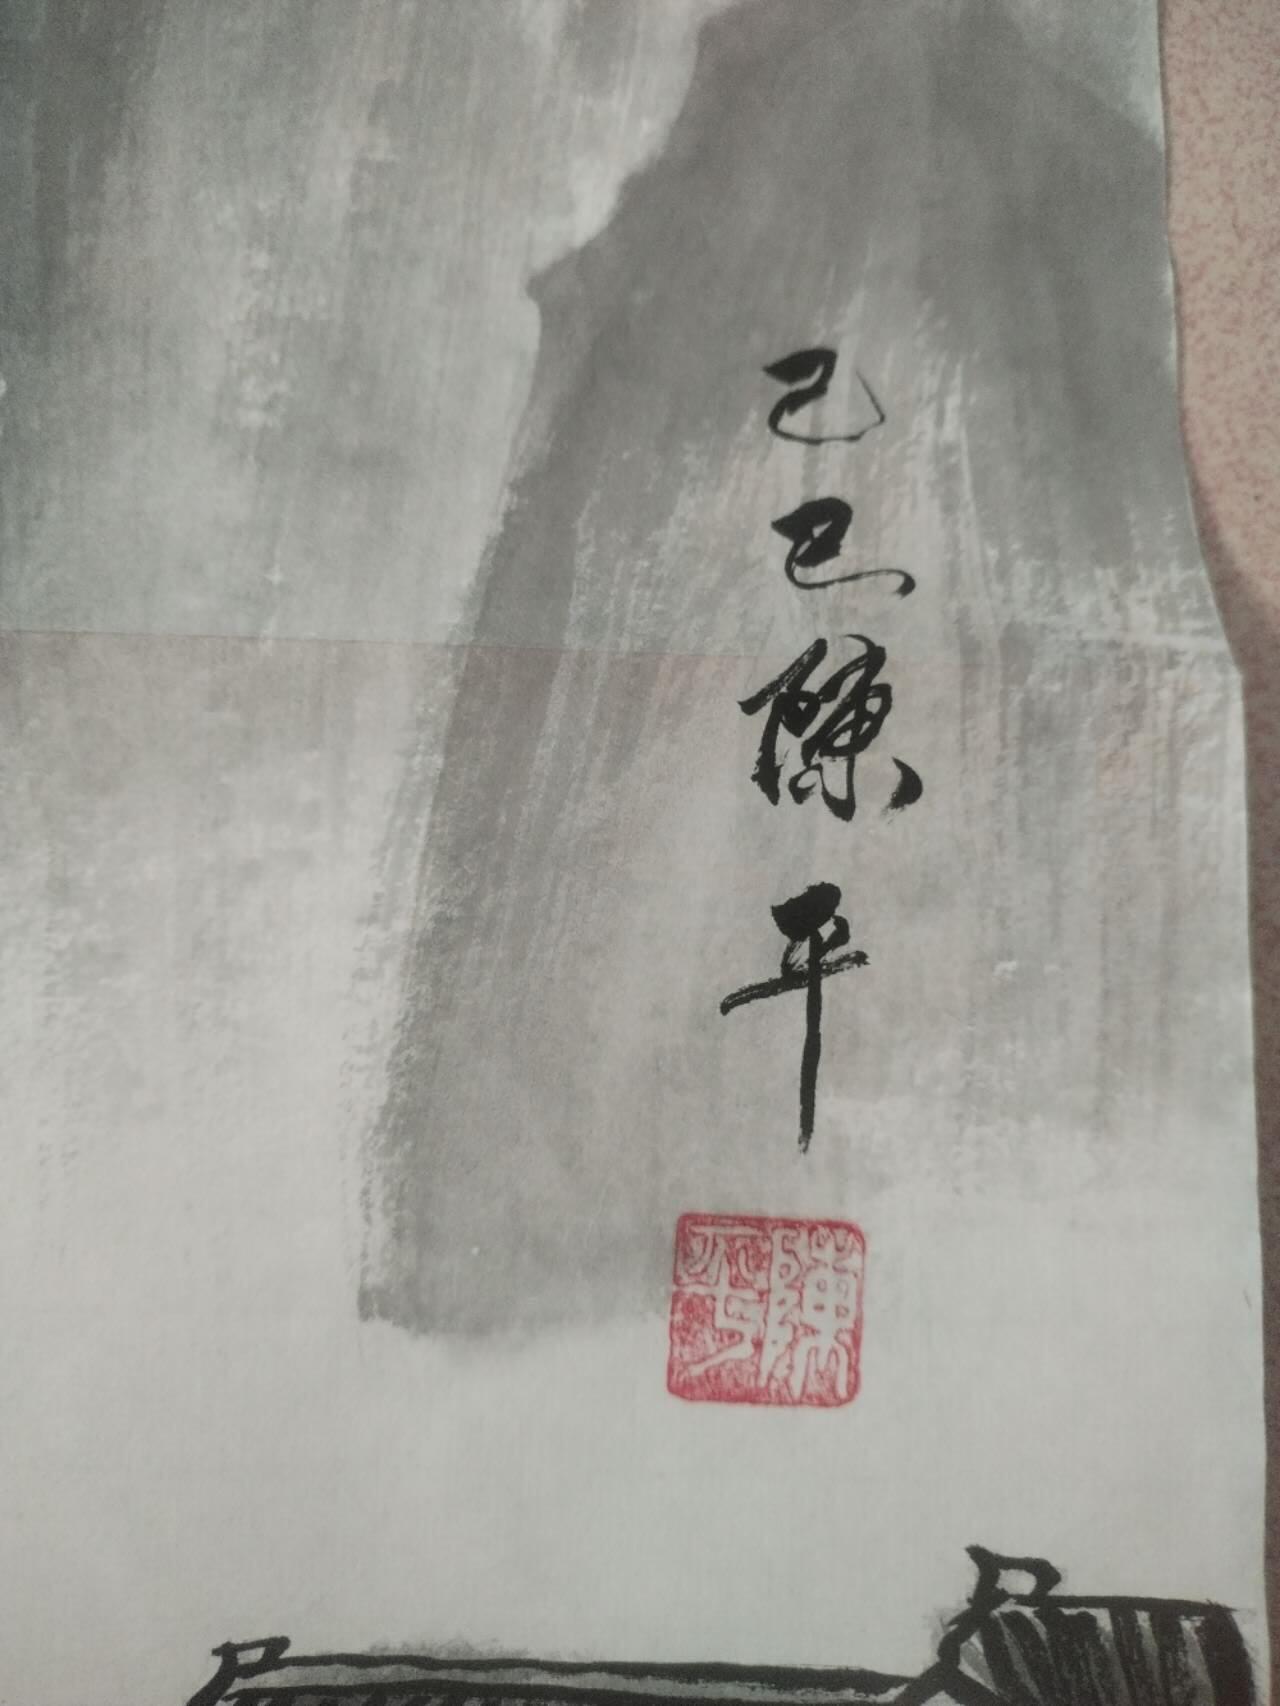 己巳陳平
陳平